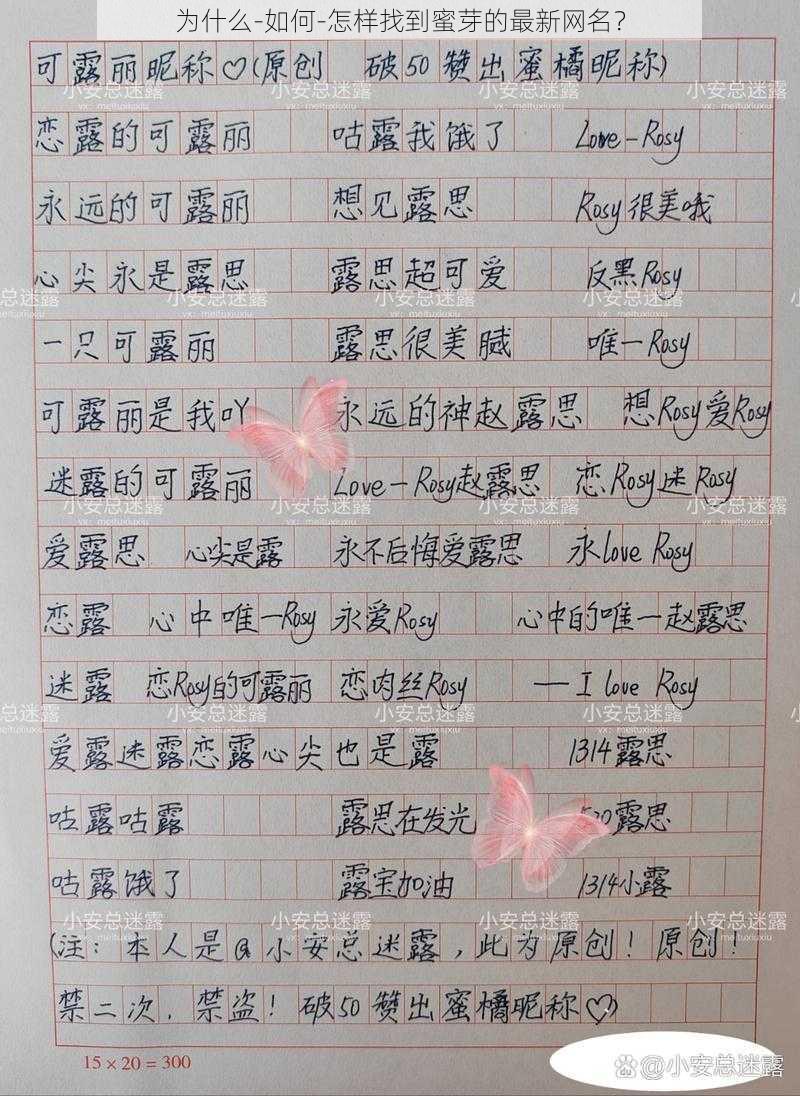 为什么-如何-怎样找到蜜芽的最新网名？
可露丽昵称♡(原创 破50赞出蜜橘昵称)
恋露的可露丽 咕露我饿了 Love-Rosy
永远的可露丽 想见露思 Rosy很美哦
心尖永是露思 露思超可爱 反黑Rosy
一只可露丽 露思很美腻 唯一Rosy
可露丽是我吖 永远的神赵露思 想Rosy爱Rosy
迷露的可露丽 Love-Rosy赵露思 恋Rosy迷Rosy
爱露思 心尖是露 永不后悔爱露思 永love Rosy
恋露 心中唯一Rosy 永爱Rosy 心中的唯一赵露思
迷露 恋Rosy的可露丽 恋肉丝Rosy —I love Rosy
爱露迷露恋露心尖也是露 1314露思
咕露咕露 露思在发光 520露思
咕露饿了 露宝加油 1314小露
(注：本人是@小安总迷露，此为原创！原创！
禁二次，禁盗！破50赞出蜜橘昵称♡)
15×20=300
@小安总迷露
小安总迷露
vx: meituxiuxiu